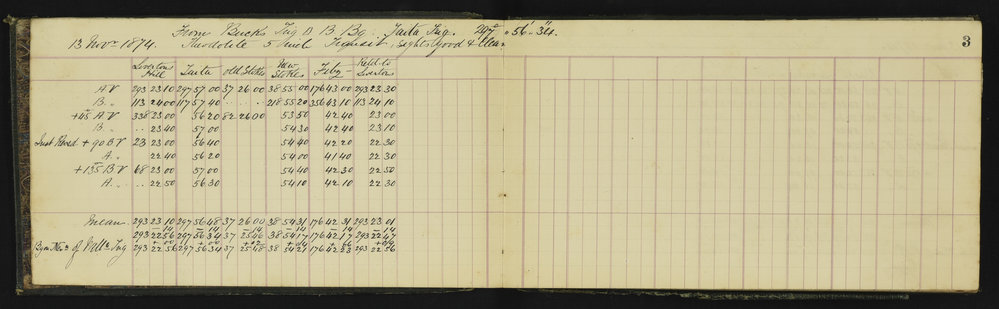 From Bucks Trig B B Bg. Taita Trig. 297° 56' 34"
13 Novr 1874. Theodolite 5 Inch Transit, Sights Good & Clear
3
Liverton Hill Taita Old Stokes New Stokes Filzy Refd to Liverton
A V 293 23 10 297 57 00 37 26 00 38 55 00 176 43 00 293 23 30
B „ 113 24 00 117 57 40 218 55 20 356 43 10 113 24 10
+45 A V 338 23 00 56 20 82 26 00 53 50 42 40 23 00
B „ 23 40 57 00 54 30 42 40 23 10
Inst Revsd + 90 B V 23 23 00 56 40 54 40 42 20 22 30
A „ 22 40 56 20 54 00 41 40 22 30
+135 B V 68 23 00 57 00 54 40 42 30 22 50
A „ 22 50 56 30 54 10 42 10 22 30
Means 293 23 10 297 56 48 37 26 00 38 54 31 176 42 31 293 23 01
-14 -14 -14 -14 -14 -14
293 22 56 297 56 34 37 25 46 38 54 17 176 42 17 293 22 47
293 22 56 297 56 34 37 25 48 38 54 21 176 42 23 293 22 56